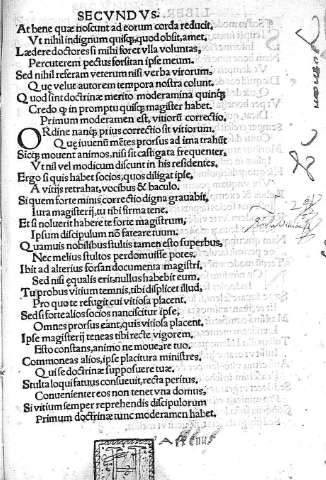 SECVNDVS.
At bene quæ noscunt ad eorum corda reducit,
Vt nihil indignum quisq; quod obsit, amet.
Lædere doctores si mihi foret vlla voluntas,
Percuterem pectus forsitan ipse meum.
Sed nihil referam veterum nisi verba virorum,
Quę velut autorem tempora nostra colunt.
Quod sint doctrinæ merito moderamina quinq;
Credo q in promptu quisq; magister habet.
Primum moderamen est, vitiorũ correctio,
ORdine nanq; prius correctio sit vitiorum,
Quę iuuenũ mẽtes prorsus ad ima trahũt
Sicq; mouent animos, nisi sit castigata frequenter,
Vt nil vel modicum discant in his residentes.
Ergo si quis habet socios, quos diligat ipse,
A vitijs retrahat, vocibus & baculo.
Si quem forte minus correctio digna grauabit,
Iura magisterij, tu tibi firma tene.
Et si noluerit habere te forte magistrum,
Ipsum discipulum nõ fateare tuum.
Quamuis nobilibus stultis tamen esto superbus,
Nec melius stultos perdomuisse potes.
Ibit ad alterius forsan documenta magistri,
Sed nisi equalis eris, nullus habebit eum,
Tu probus vitium temnis, tibi displicet illud,
Pro quo te refugit cui vitiosa placent.
Sed si forte alios socios nanciscitur ipse,
Omnes prorsus eant, quis vitiosa placent.
Ipse magisterij teneas tibi recte vigorem,
Esto constans, animo ne moueare tuo.
Commoneas alios, ipse placitura ministres,
Qui se doctrinæ supposuere tuæ.
Stulta loqui fatuus consueuit, recta peritus,
Conuenienter eos non tenet vna domus,
Si vitium semper reprehendis discipulorum
Primum doctrinæ tunc moderamen habet.